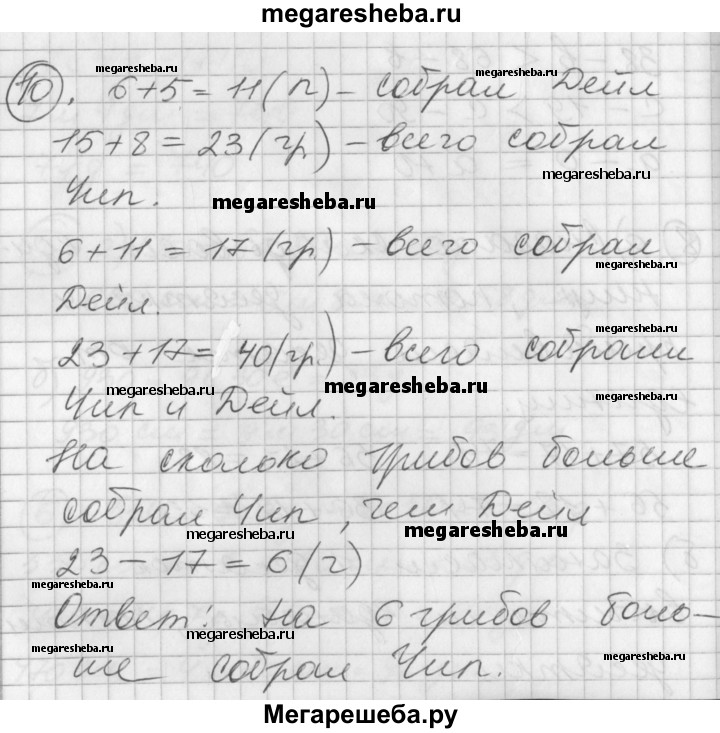 megaresheba.ru
megaresheba.ru
10. 6+5 = 11 (п) – собрал Дейл
15+8 = 23 (гр) – всего собрал
megaresheba.ru
Чип.
megaresheba.ru
6+11 = 17 (гр) – всего собрал
megaresheba.ru
Дейл.
megaresheba.ru
23+17 = 40 (гр) – всего собрали
megaresheba.ru
megaresheba.ru
Чип и Дейл.
На сколько грибов больше
собрал Чип, чем Дейл
megaresheba.ru
megaresheba.ru
23 – 17 = 6 (г)
megaresheba.ru
Ответ: на 6 грибов боль-
megaresheba.ru
megaresheba.ru
megaresheba.ru
ше собрал Чип.
Мегарешеба.ру